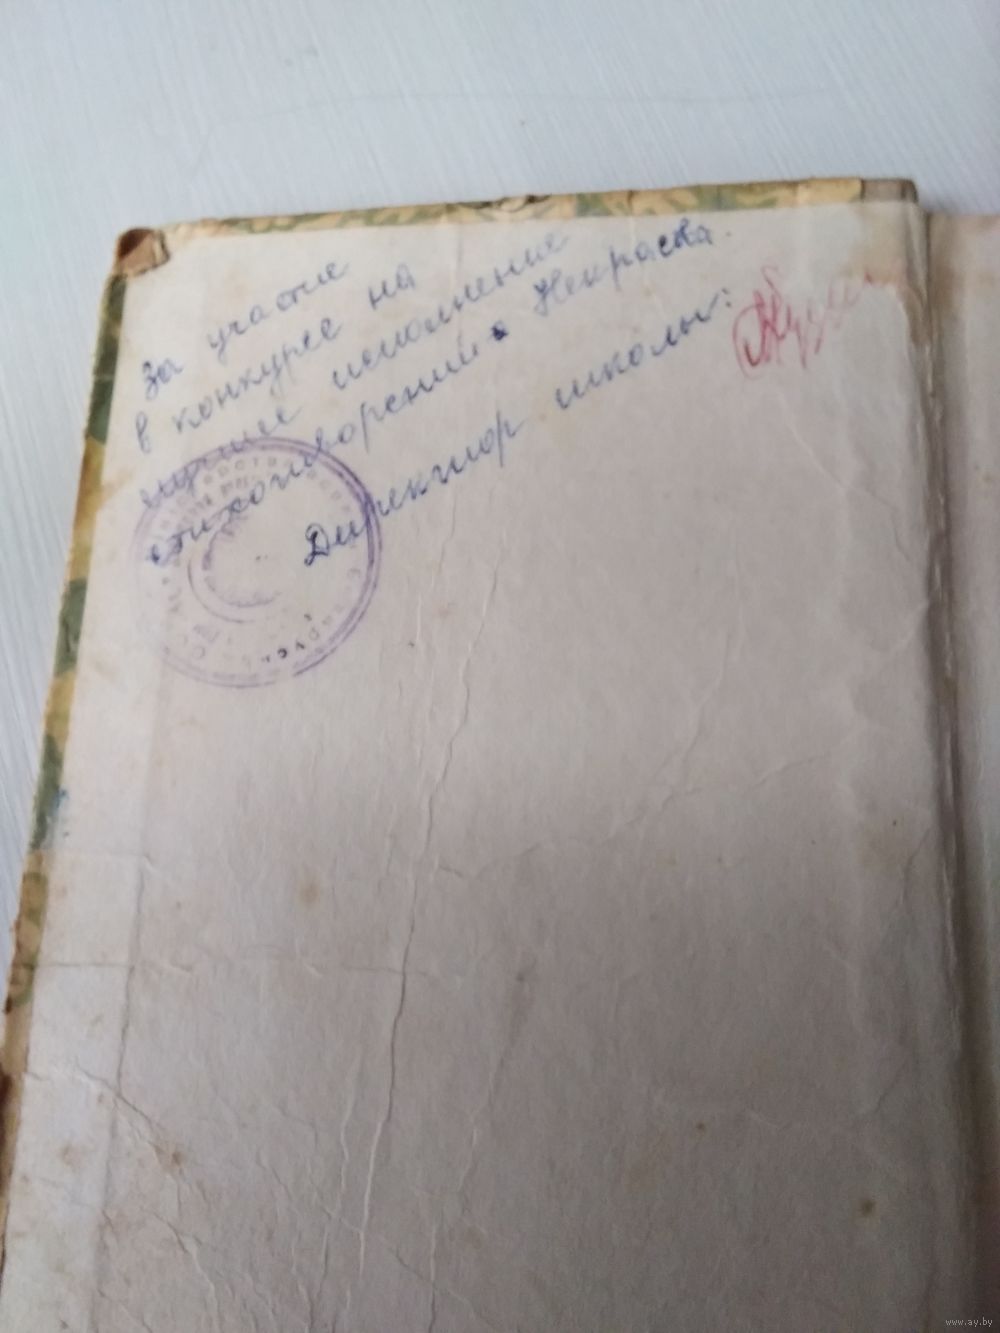 За участие
в конкурсе на
лучшее исполнение
стихотворений Некрасова.
Директор школы:
www.ay.by